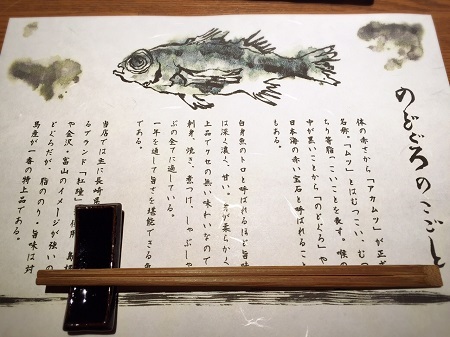 のどぐろのこごしと
体の赤さから「アカムツ」が正
名称。「ムツ」とはむつこい、むつ
ちり等脂っこいことを表す。喉の
中が黒いことから「のどぐろ」や
日本海の赤い宝石と呼ばれること
もある。
白身魚のトロと呼ばれるほど旨味
は深く濃く、甘い。身が柔らかく
上品でクセの無い味わいなので
刺身、焼き、煮つけ、しゃぶしゃ
ぶの全てに適している。
一年を通して旨さを堪能できる魚
である。
当店では主に長崎県
るブランド「紅瞳」
や金沢、富山のイメージが強いの
どぐろだが、脂ののり・旨味は対
馬産が一番の特上品である。